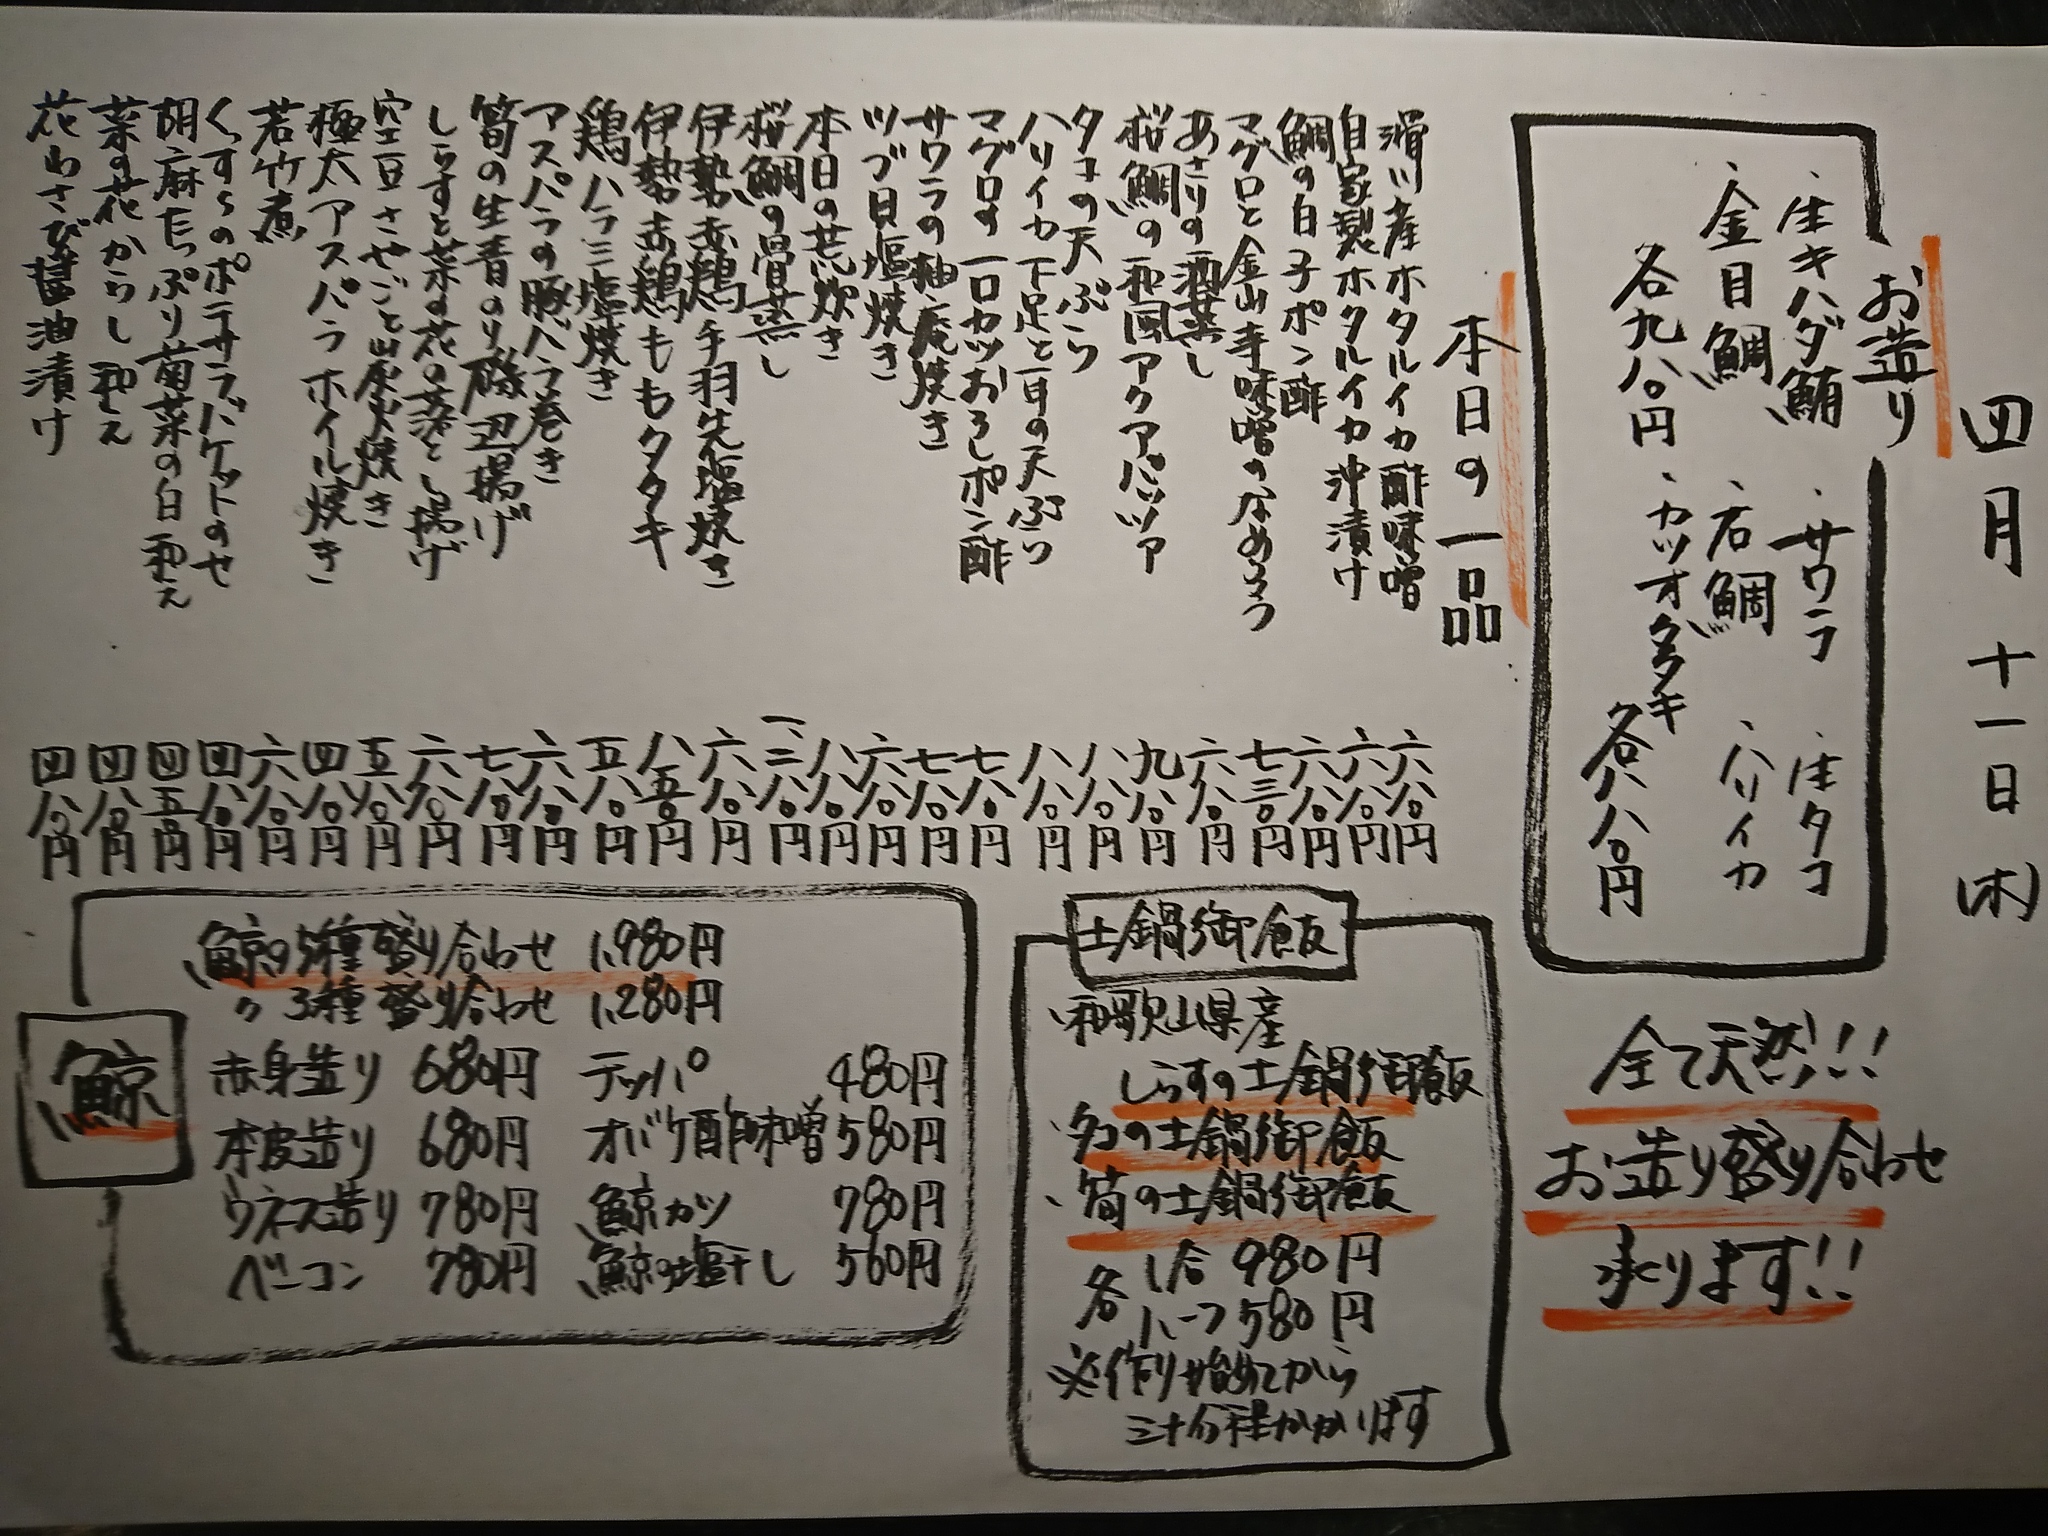 四月十一日(木)
お造り
・生キハダ鮪 ・サワラ ・生タコ
・金目鯛 ・石鯛 ・ハリイカ
各九八〇円 ・カツオタタキ 各八八〇円
全て天然!!!
お造り盛り合わせ
承ります!!
本日の一品
滑川産ホタルイカ酢味噌 六八〇円
自家製ホタルイカ沖漬け 六八〇円
鯛の白子ポン酢 六八〇円
マグロと金山寺味噌のなめろう 七三〇円
あさりの酒蒸し 六八〇円
桜鯛の和風アクアパッツァ 九八〇円
タコの天ぷら 八八〇円
ハリイカ下足と耳の天ぷら 八八〇円
マグロの一口カツおろしポン酢 七八〇円
サワラの柚庵焼き 七八〇円
ツブ貝塩焼き 六八〇円
本日の荒炊き 八八〇円
桜鯛の骨蒸し 一、二八〇円
伊勢赤鶏手羽先塩焼き 六八〇円
伊勢赤鶏ももタタキ 八五〇円
鶏ハラミ塩焼き 五八〇円
アスパラの豚バラ巻き 六八〇円
筍の生青のり磯辺揚げ 七八〇円
しらすと菜の花の落とし揚げ 六八〇円
空豆さやごと炭火焼き 五八〇円
極太アスパラホイル焼き 四八〇円
若竹煮 六八〇円
くずしのポテサラバケットのせ 四八〇円
胡麻たっぷり菊菜の白和え 四五〇円
菜の花からし和え 四八〇円
花わさび醤油漬け 四八〇円
土鍋御飯
・和歌山県産
しらすの土鍋御飯
・タコの土鍋御飯
・筍の土鍋御飯
各 1合 980円
ハーフ 580円
※作り始めてから
三十分程かかります
鯨
鯨の5種盛り合わせ 1,980円
〃 3種盛り合わせ 1,280円
赤身造り 680円 テッパ 480円
本皮造り 680円 オバケ酢味噌 580円
ウネス造り 780円 鯨カツ 780円
ベーコン 780円 鯨の塩干し 560円